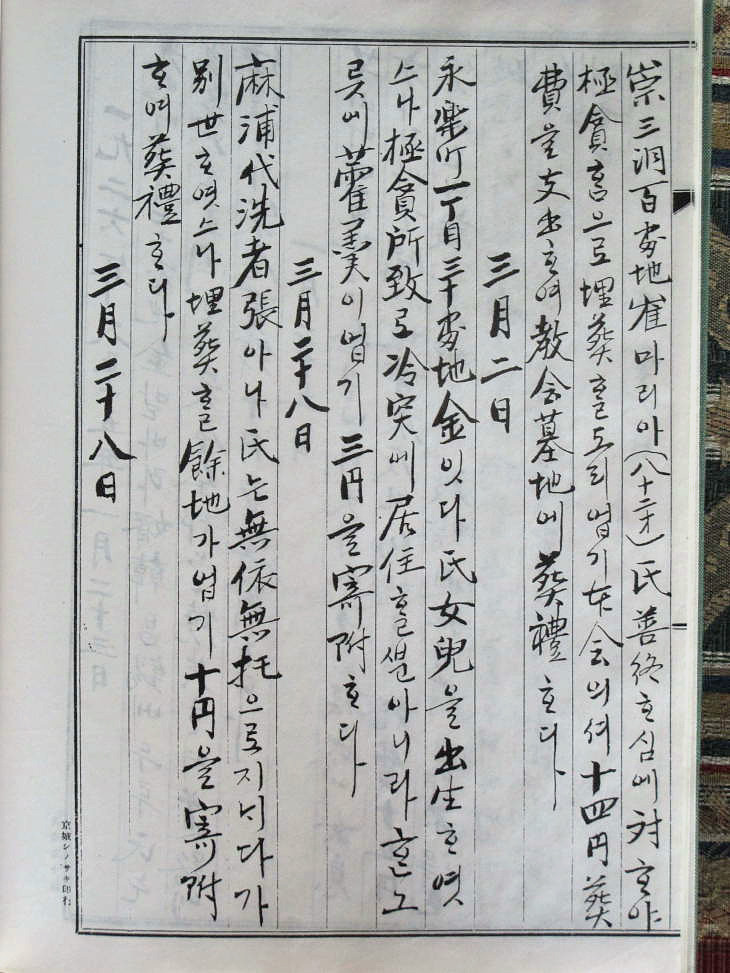 崇三洞百番地崔마리아(八十二才)氏善終ᄒᆞ심에対ᄒᆞ야
極貧홈으로埋葬ᄒᆞᆯ도리업기本会의셔十四円葬
費을支出ᄒᆞ여教会墓地에葬禮ᄒᆞ다
三月二日
永楽町一丁目三十番地金잇다氏女兒을出生ᄒᆞ엿
스나極貧所致로冷突에居住ᄒᆞᆯᄲᅮᆫ아니라
藿羹이업기三円을寄附ᄒᆞ다
三月二十八日
麻浦代洗者張아나氏는無依無托으로지ᄂᆡ다가
別世ᄒᆞ엿스나埋葬ᄒᆞᆯ餘地가업기十円을寄附
ᄒᆞ여葬禮ᄒᆞ다
三月二十八日
京城シノサキ印行